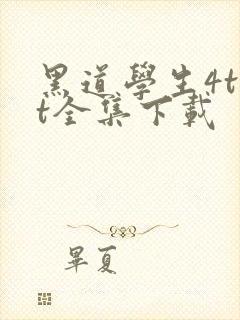 黑道學生4t
t全集下載
畢夏